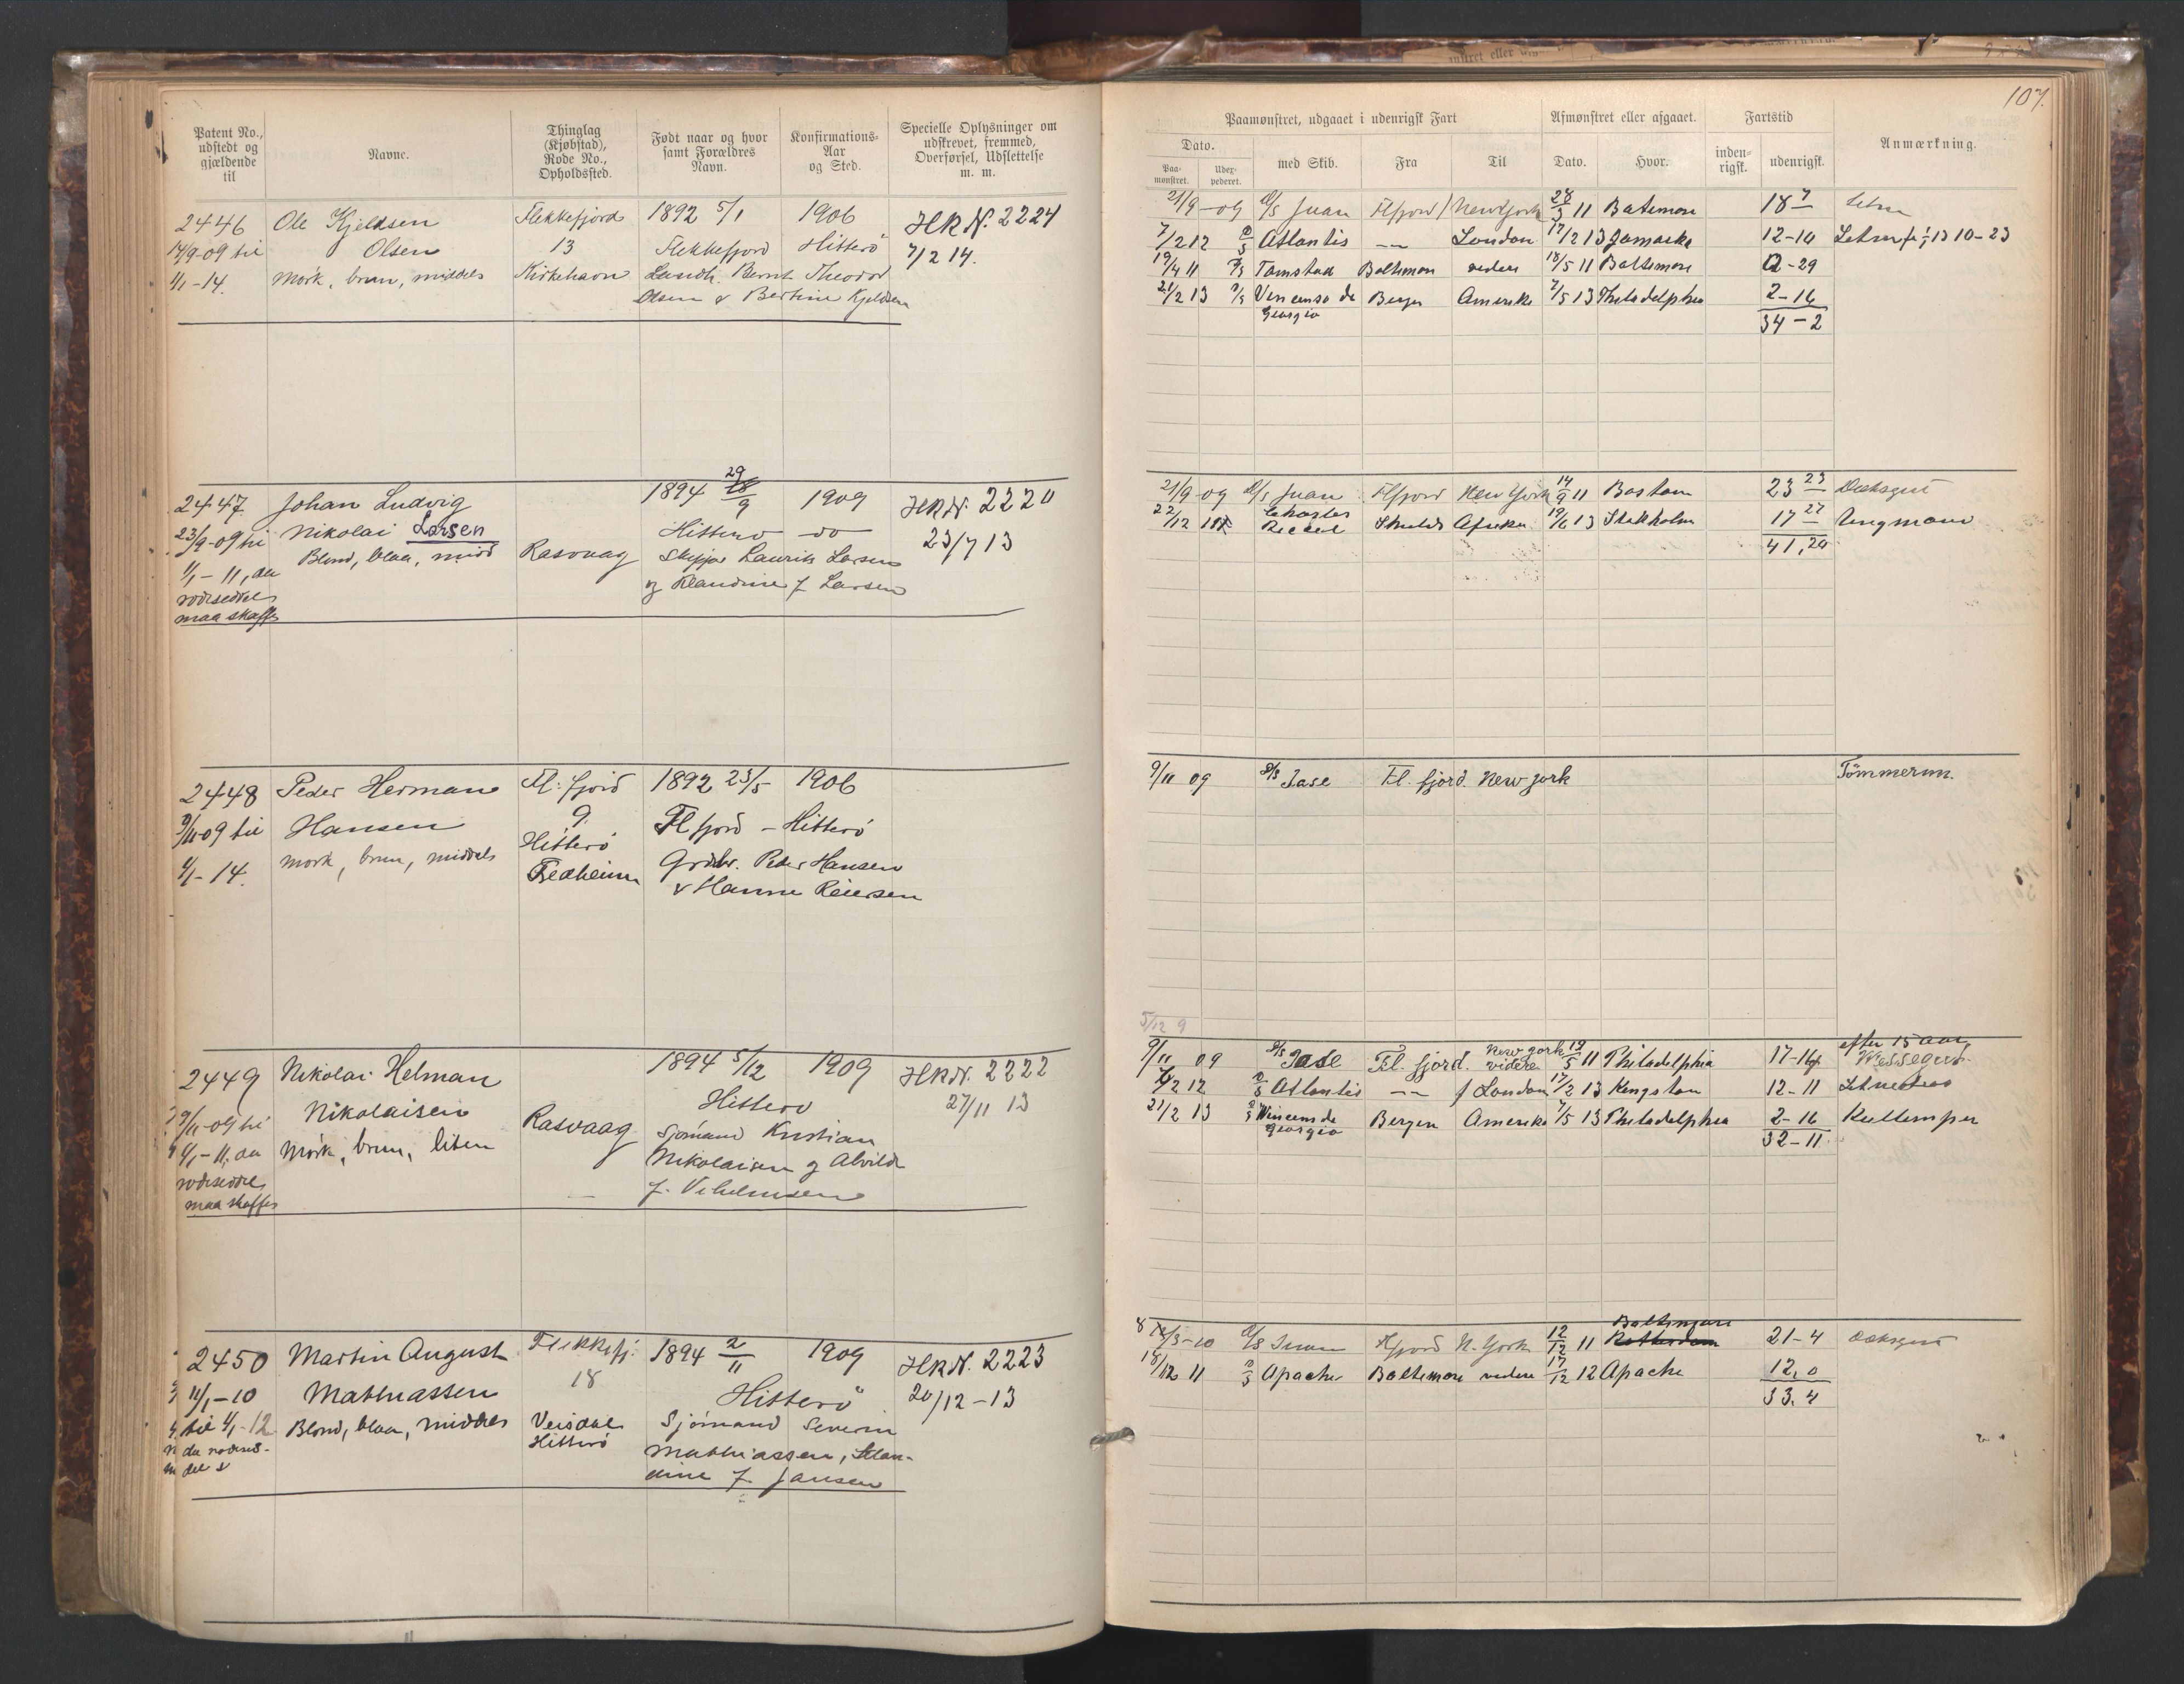 107.
Patent No., udstedt og gjældende til
Navne.
Thinglag (Kjøbstad), Rode No., Opholdssted.
Født naar og hvor samt Forældres Navn.
Konfirmations-Aar og Sted.
Specielle Oplysninger om udskrevet, fremmed, Overførsel, Udslettelse m. m.
Paamønstret, udgaaet i udenrigsk Fart
Afmønstret eller afgaaet.
Fartstid
Anmærkning.
Dato.
Paa-mønstret.
Udex-pederet.
med Skib.
Fra
Til
Dato.
Hvor.
inden-rigsk.
udenrigsk.
2446 Ole Kjeldsen Flekkefjord 1892 5/1 1906 HRN. 2224
14/9-09 til Olsen 13 Flekkefjord Hitterö 7/2 14.
1/1-14. Mørk, brun, middels Kirkehavn Landh. Bernt Theodor
Olsen & Bertine Kjeldsen
21/9-09 D/S Juan Flfjord New York 28/3 11 Batimore 18 7
7/2 12 D/S Atlantis London 17/2 13 Jamaika 12-14
19/4 11 D/S Tamstad Baltimore videre 18/5 11 Baltimore 0-29
21/2 13 D/S Vincenso de Georgio Bergen Amerika 7/5 13 Philadelphia 2-16
34-2
2447 Johan Ludvig 1894 29/9 1909 HRN. 2220
23/9-09 til Nikolai Larsen Hitterø do 23/7 13
1/1-11, da Blond, blaa, midd Rasvaag Skipper Lauritz Larsen
rodeseddel og Klaudine f. Larsen
maa skaffes
21/9-09 D/S Juan Flfjord New York 14/9 11 Boston 23 23 Dæksgut
22/12 11 Charles Racket Afrika 19/6 13 Stokholm 17 27 Ungmand
41,20
2448 Peder Herman Fl. fjord 1892 23/5 1906
9/11-09 til Hansen 9. Fl fjord - Hitterö
1/1-14. mørk, brun, middels Hitterö Grdbr. Peder Hansen
Fedheim & Hanne Reiersen
9/11 09 S/S Jase Fl. fjord. New york Tömmerm.
5/12 9
2449 Nikolai Helman 1894 5/12 1909 HRN. 2222
9/11-09 til Nikolaisen Hitterø 27/11 13
1/1-11, da Mørk, brun, liten Rasvaag Sjømand Kristian
rodeseddel Nikolaisen og Alvilde
maa skaffes f. Vilhelmsen
9/11 09 S/S Jase Fl. fjord. New york videre 19/5 11 Philadelphia 17-16 efter 15 aar, Messegut
7/2 12 D/S Atlantis London 17/2 13 Kingston 12-11
21/2 13 D/S Vincens de Georgio Bergen Amerika 7/5 13 Philadelphia 2-16 Kullemper
32-11
2450 Martin August Flekkefj. 1894 2/11 1909 HRN. 2223
11/1-10 Mathiassen 18 Hitterö 20/12-13
til 1/1-12 Blond, blaa, middels Veisdal Sjömand Severin
da rodesed- Hitterö Mathiassen, Klau-
del & dine f. Jansen
D/S Juan Flfjord N. York 12/12 11 Baltimore Rotterdam 21-4 Dæksgut
18/12 11 D/S Apache Baltimore videre 17/12 12 Apache 12,0
33.4